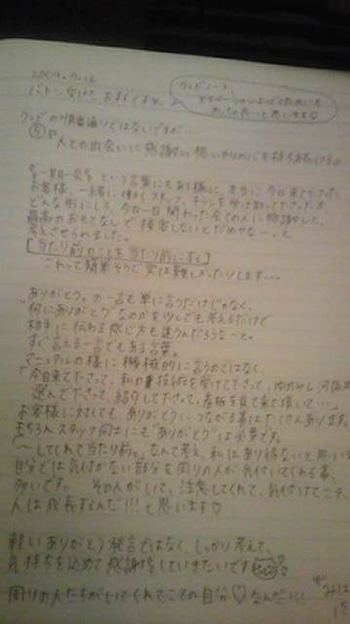 2009.9.16
バトン受けて、おまたせです。
クレドノート
クレドの順番通りではないですが…
⑤ 人との出会いに感謝し、思いやりの心を持ち
"一期一会" という言葉にもある様に、本当に今日来て下さった
お客様、一緒に働くスタッフ、チラシを受け取って下さった方
どんな形にしろ、今日一日関わった全ての人に感謝して、
最高のおもてなしで接客しないとだめだな〜。と
考えさせられました。
[当たり前のことを当たり前にする]
これって簡単そうで実は難しかったりします…
ありがとう。の一言も単に言うだけじゃなく、
"何にありがとう" なのかを少しでも考えるだけで
相手に伝わる感じ方も違うんだろうな〜と。
すぐ言える一言でもある言葉。
マニュアルの様に機械的に言うのではなく、
"今日来て下さって、私の技術を受けて下さって、
選んで下さって、紹介して下さって、看板を見て来て頂いて…"
お客様に対しても、ありがとうにつながる事はたくさんあります。
もちろんスタッフ同士にも"ありがとう"は必要です。
"〜してくれて当たり前。"なんて考え、私はあり得ないと思いま
自分では気付かない部分を周りの人が気付いてくれる事、
多いです。 その人がいて、注意してくれて、気付けてこそ、
人は成長するんだ!!! と思います♡
軽いありがとう発言ではなく、しっかり考えて、
気持ちを込めて感謝していきたいです
周りの人たちがいてくれてこその自分♡なんだ!!!